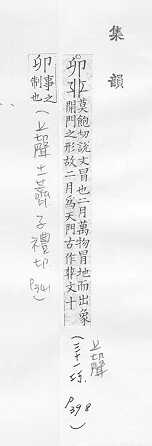 集韻
卯𢆉莫飽切說文冒也二月萬物冒地而出象
開門之形故二月為天門古作𢆉文十
上聲
(三十一巧)
P398
卯事之制也
(上聲十一薺 子禮切
P341